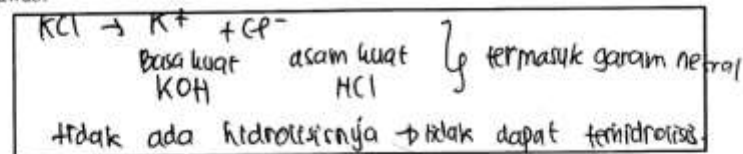 KCl → K+ + Cl-
Basa kuat asam kuat } termasuk garam netral
KOH HCl
tidak ada hidrolisisnya → tidak dapat terhidrolisis.